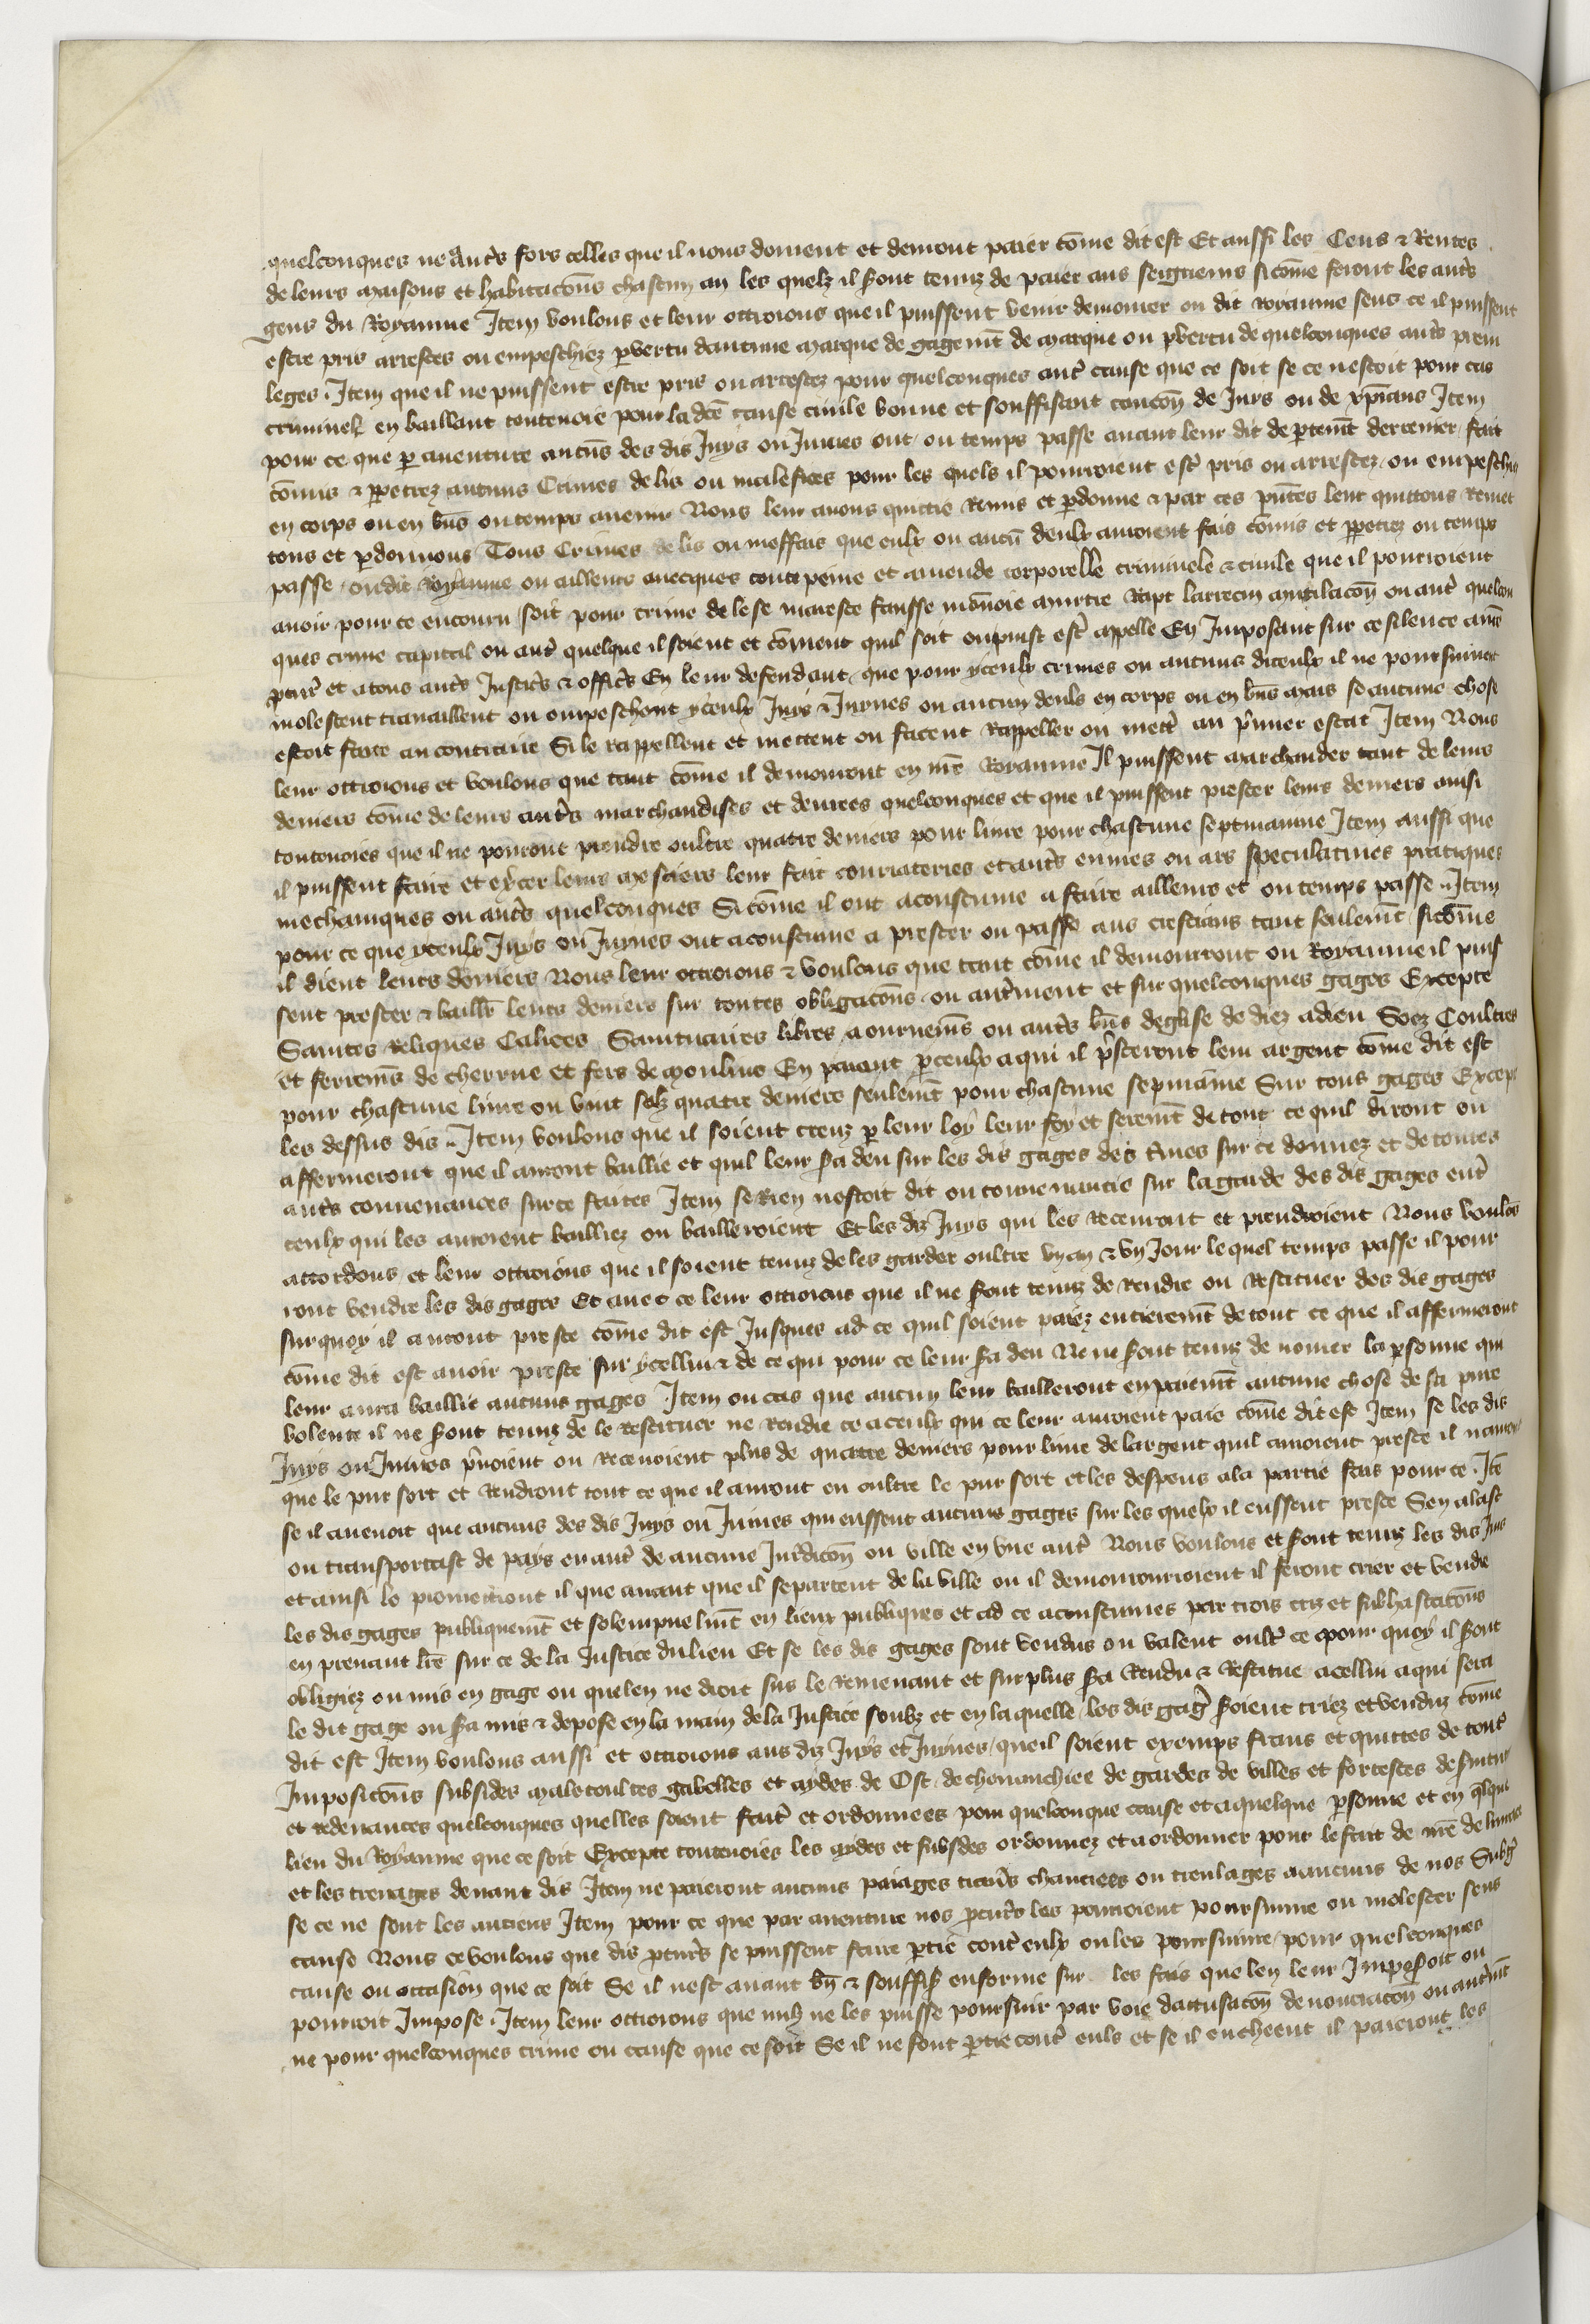 quelconques ne autrs fors celles que il nous doivent et devront paier cōme dit est Et aussi les Cens & Rentes
de leurs maisons et habitacōns chascun an les quelz il sont tenuz de paier aus seigneurs sicōme feront les autrs
gens du Royaume Item voulons et leur ottroions que il puissent venir demourer ou dit royaume sens ce il puissent
estre pris arrestes ou empeschiez p vertu daucune marque de gagemt de marque ou p vertu de quelconques autrs previ
leges . Item que il ne puissent estre pris ou arrestez pour quelconques autr cause que ce soit se ce nestoit pour cas
criminel en baillant toutevoie pour la dce cause civile bonne et souffisant caucōn de Juys ou de xpians Item
pour ce que p aventure aucūs des dis Juys ou Juives ont ou temps passe avant leur dit depertemt derrenier fait
cōmis & ppetrez aucuns Crimes deliz ou malefices pour les quels il pourroient estr pris ou arrestez ou empeschiez
en corps ou en bns ou temps avenir Nous leur avons quittie Remis et pdonne & par ces pntes leur quittons Remet
tons et pdonnons Tous Crimes deliz ou meffais que eulx ou aucū deulx auroient fais cōmis et ppetrez ou temps
passe ou dit royaume ou ailleurs avecques toute peine et amende corporelle criminele & civile que il pourroient
avoir pour ce encouru soit pour crime de lese maieste fausse mōnoie murtre Rapt larrecin mutilacōn ou autr quelcon
ques crime capital ou autr quelque il soient et cōment quil soit ou puist estr appelle En Imposant sur ce silence a nre
pcurr et a tous autrs Justicrs & officrs En leur defendant que pour yceulx crimes ou aucuns diceulx il ne poursuivent
molestent travaillent ou empeschent yceulx Juys & Juyves ou aucun deuls en corps ou en bns mais se aucune chose
estoit faite au contraire Si le rappellent et mettent ou facent Rappeller ou mettr au prmier estat Item Nous
leur ottroions et voulons que tant cōme il demorront en nre Royaume Il puissent marchander tant de leurs
deniers cōme de leurs autrs marchandises et denrees quelconques et que il puissent prester leurs deniers ainsi
toutevoies que il ne pourront prendre oultre quatre deniers pour livre pour chascune septmainne Item aussi que
il puissent faire et exrcer leurs mestiers leur fait courrateries et autrs euvres ou ars speculatives pratiques
mechaniques ou autrs quelconques Si cōme il ont acoustume a faire ailleurs et ou temps passe .. Item
pour ce que yceulx Juys ou Juyves ont acoustume a prester ou passe aus crestians tant seulemt sicōme
il dient leurs deniers Nous leur ottroions & voulons que tant cōme il demourront ou Royaume il puis
sent prester & baillr leurs deniers sur toutes obligacōns ou autrment et sur quelconques gages Excepte
Saintes reliques Calices Saintuaires libres aournemēs ou autrs bns deglise dediez a dieu Socz Coultres
et ferremēs de cherrue et fers de moulins En paiant p ceulx a qui il prsteront leur argent cōme dit est
pour chascune livre ou vint solz quatre deniers seulemt pour chascune sepmainne Sur tous gages Except
les dessus dis .. Item voulons que il soient creuz p leur loy leur foy et seremt de tout ce quil diront ou
affermeront que il auront baillie et quil leur sra deu sur les dis gages des tmes sur ce donnez et de toutes
autrs convenances sur ce faites Item se Rien nestoit dit ou convenancie sur la garde des dis gages entr
ceulx qui les auroient bailliez ou bailleroient Et les diz Juys qui les Recevront et prendroient Nous voulōs
accordons et leur ottroions que il soient tenuz de les garder oultre un an & un Jour lequel temps passe il pour
ront vendre les dis gages Et avec ce leur ottroions que il ne sont tenuz de Rendre ou Restituer des dis gages
surquoy il auront preste cōme dit est Jusques ad ce quil soient paiez entieremt de tout ce que il affermeront
cōme dit est avoir preste sur ycellui & de ce qui pour ce leur sra deu Ne ne sont tenuz de nōmer la psonne qui
leur aura baillie aucuns gages Item ou cas que aucun leur bailleront en paiemt aucune chose de sa pure
volente il ne sont tenuz de le restituer ne rendre ce a ceulx qui ce leur auroient paie cōme dit est Item se les dis
Juys ou Juives prnoient ou Recevoient plus de quatre deniers pour livre de largent quil auroient preste il nauroient
que le pur sort et Rendront tout ce que il auront eu oultre le pur sort et les despens a la partie fais pour ce . Ite
se il avenoit que aucuns des dis Juys ou Juives qui eussent aucuns gages sur les quelx il eussent preste Sen alast
ou transportast de pays en autr de aucune Jurdicōn ou ville en une autr Nous voulons et sont tenuz les dis Juis
et ainsi le promettront il que avant que il se partent de la ville ou il demourroient il feront crier et vendre
les dis gages publiquemt et solempnelmt en lieux publiques et ad ce acoustumes par trois cris et subhastacōns
en prenant lre sur ce de la Justice du lieu Et se les dis gages sont vendus ou valent oultr ce pour quoy il sont
obligiez ou mis en gage ou que len ne droit sus le Remenant et surplus sra Rendu & Restitue a cellui a qui sera
le dit gage ou sra mis & depose en la main de la Justice soubz et en laquelle les dis gags soient criez et venduz cōme
dit est Item voulons aussi et ottroions aus diz Juys et Juyves que il soient exemps frans et quittes de toutes
Imposicōns subsides maletoultes gabelles et aydes de Ost de chevauchiee de gardes de villes et forteresces de servitu
et redevances quelconques quelles soient faitr et ordonnees pour quelconque cause et a quelque psonne et en qlque
lieu du Royaume que ce soit Excepte toutevoies les aydes et subsdes ordonnez et a ordonner pour le fait de nre delivrance
et les treuages devant dis Item ne paieront aucuns paiages travrs chauciees ou treulages a aucuns de nos Subgs
se ce ne sont les anciens Item pour ce que par aventure nos pcurrs les pourroient poursuivre ou molester sens
cause Nous ce voulons que dis pcurrs se puissent faire ptie contr eulx ou les poursuivre pour quelconques
cause ou occasion que ce soit Se il nest avant bn & souffisī enforme sur les fais que len leur Imposoit ou
pourroit Impose . Item leur ottroions que nulz ne les puisse poursuir par voie daccusacōn denonciacōn ou autrmt
ne pour quelconques crime ou cause que ce soit Se il ne font ptie contr euls et se il encheent il paieront les